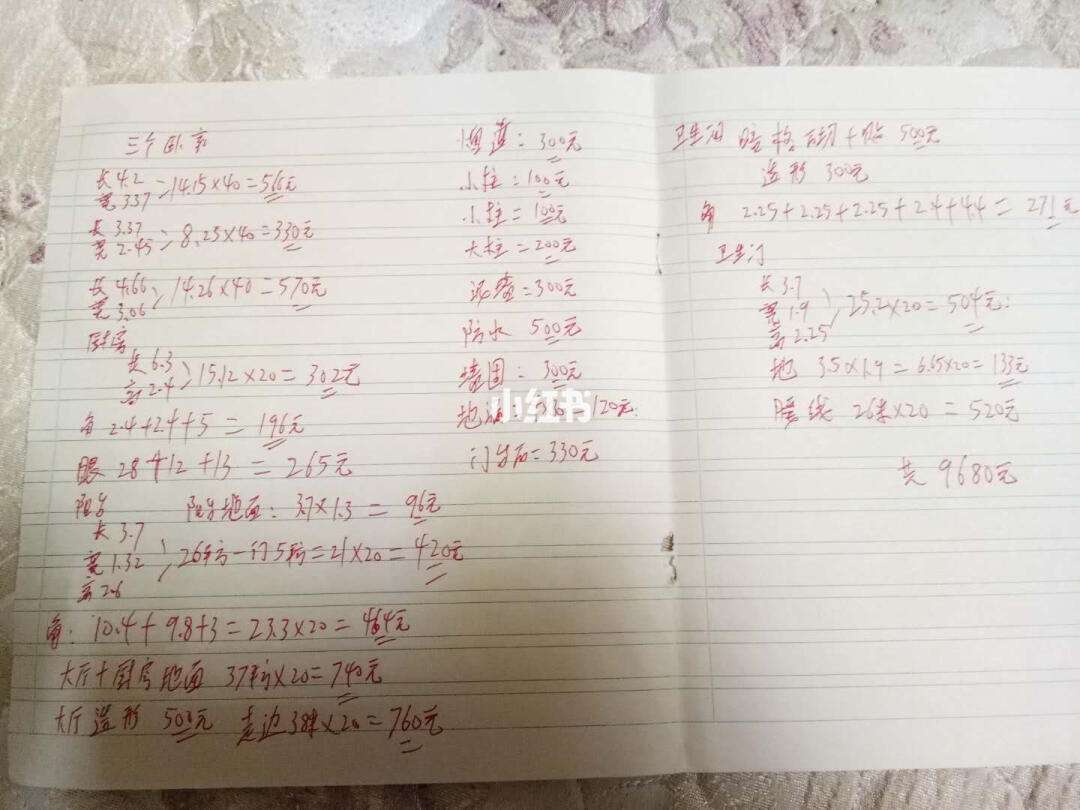 三个卧室
长4.2
宽3.37 14.15×40=566元
长3.37
宽2.45 8.25×40=330元
长4.66
宽3.06 14.26×40=570元
厨房
长6.3
高2.4 15.12×20=302元
角 2.4+2.4+5=196元
眼 28+12+13=265元
阳台 阳台地面:3.7×1.3=96元
长3.7
宽1.32 26平方一门5平方=21×20=420元
高2.6
角:10.4+9.8+3=23.3×20=464元
大厅+厨房地面 37平方×20=740元
大厅造形 500元 走边38米×20=760元
烟道:300元
小柱:100元
小柱:100元
大柱=200元
浴盆=300元
防水 500元
墙固:300元
地漏: 120元
门台石=330元
小红书
卫生间 500元
造形 300元
角 2.25+2.25+2.25+2.4+4.4=271元
卫生间
长3.7
宽1.9 25.2×20=504元
高2.25
地 3.5×1.9=6.65×20=133元
腰线 26米×20=520元
共 9680元